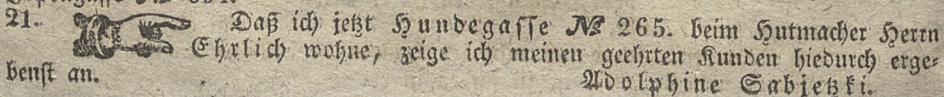 21. Daß ich jetzt Hundegasse № 265. beim Hutmacher Herrn
Ehrlich wohne, zeige ich meinen geehrten Kunden hiedurch erge-
benst an. Adolphine Sabjetzki.